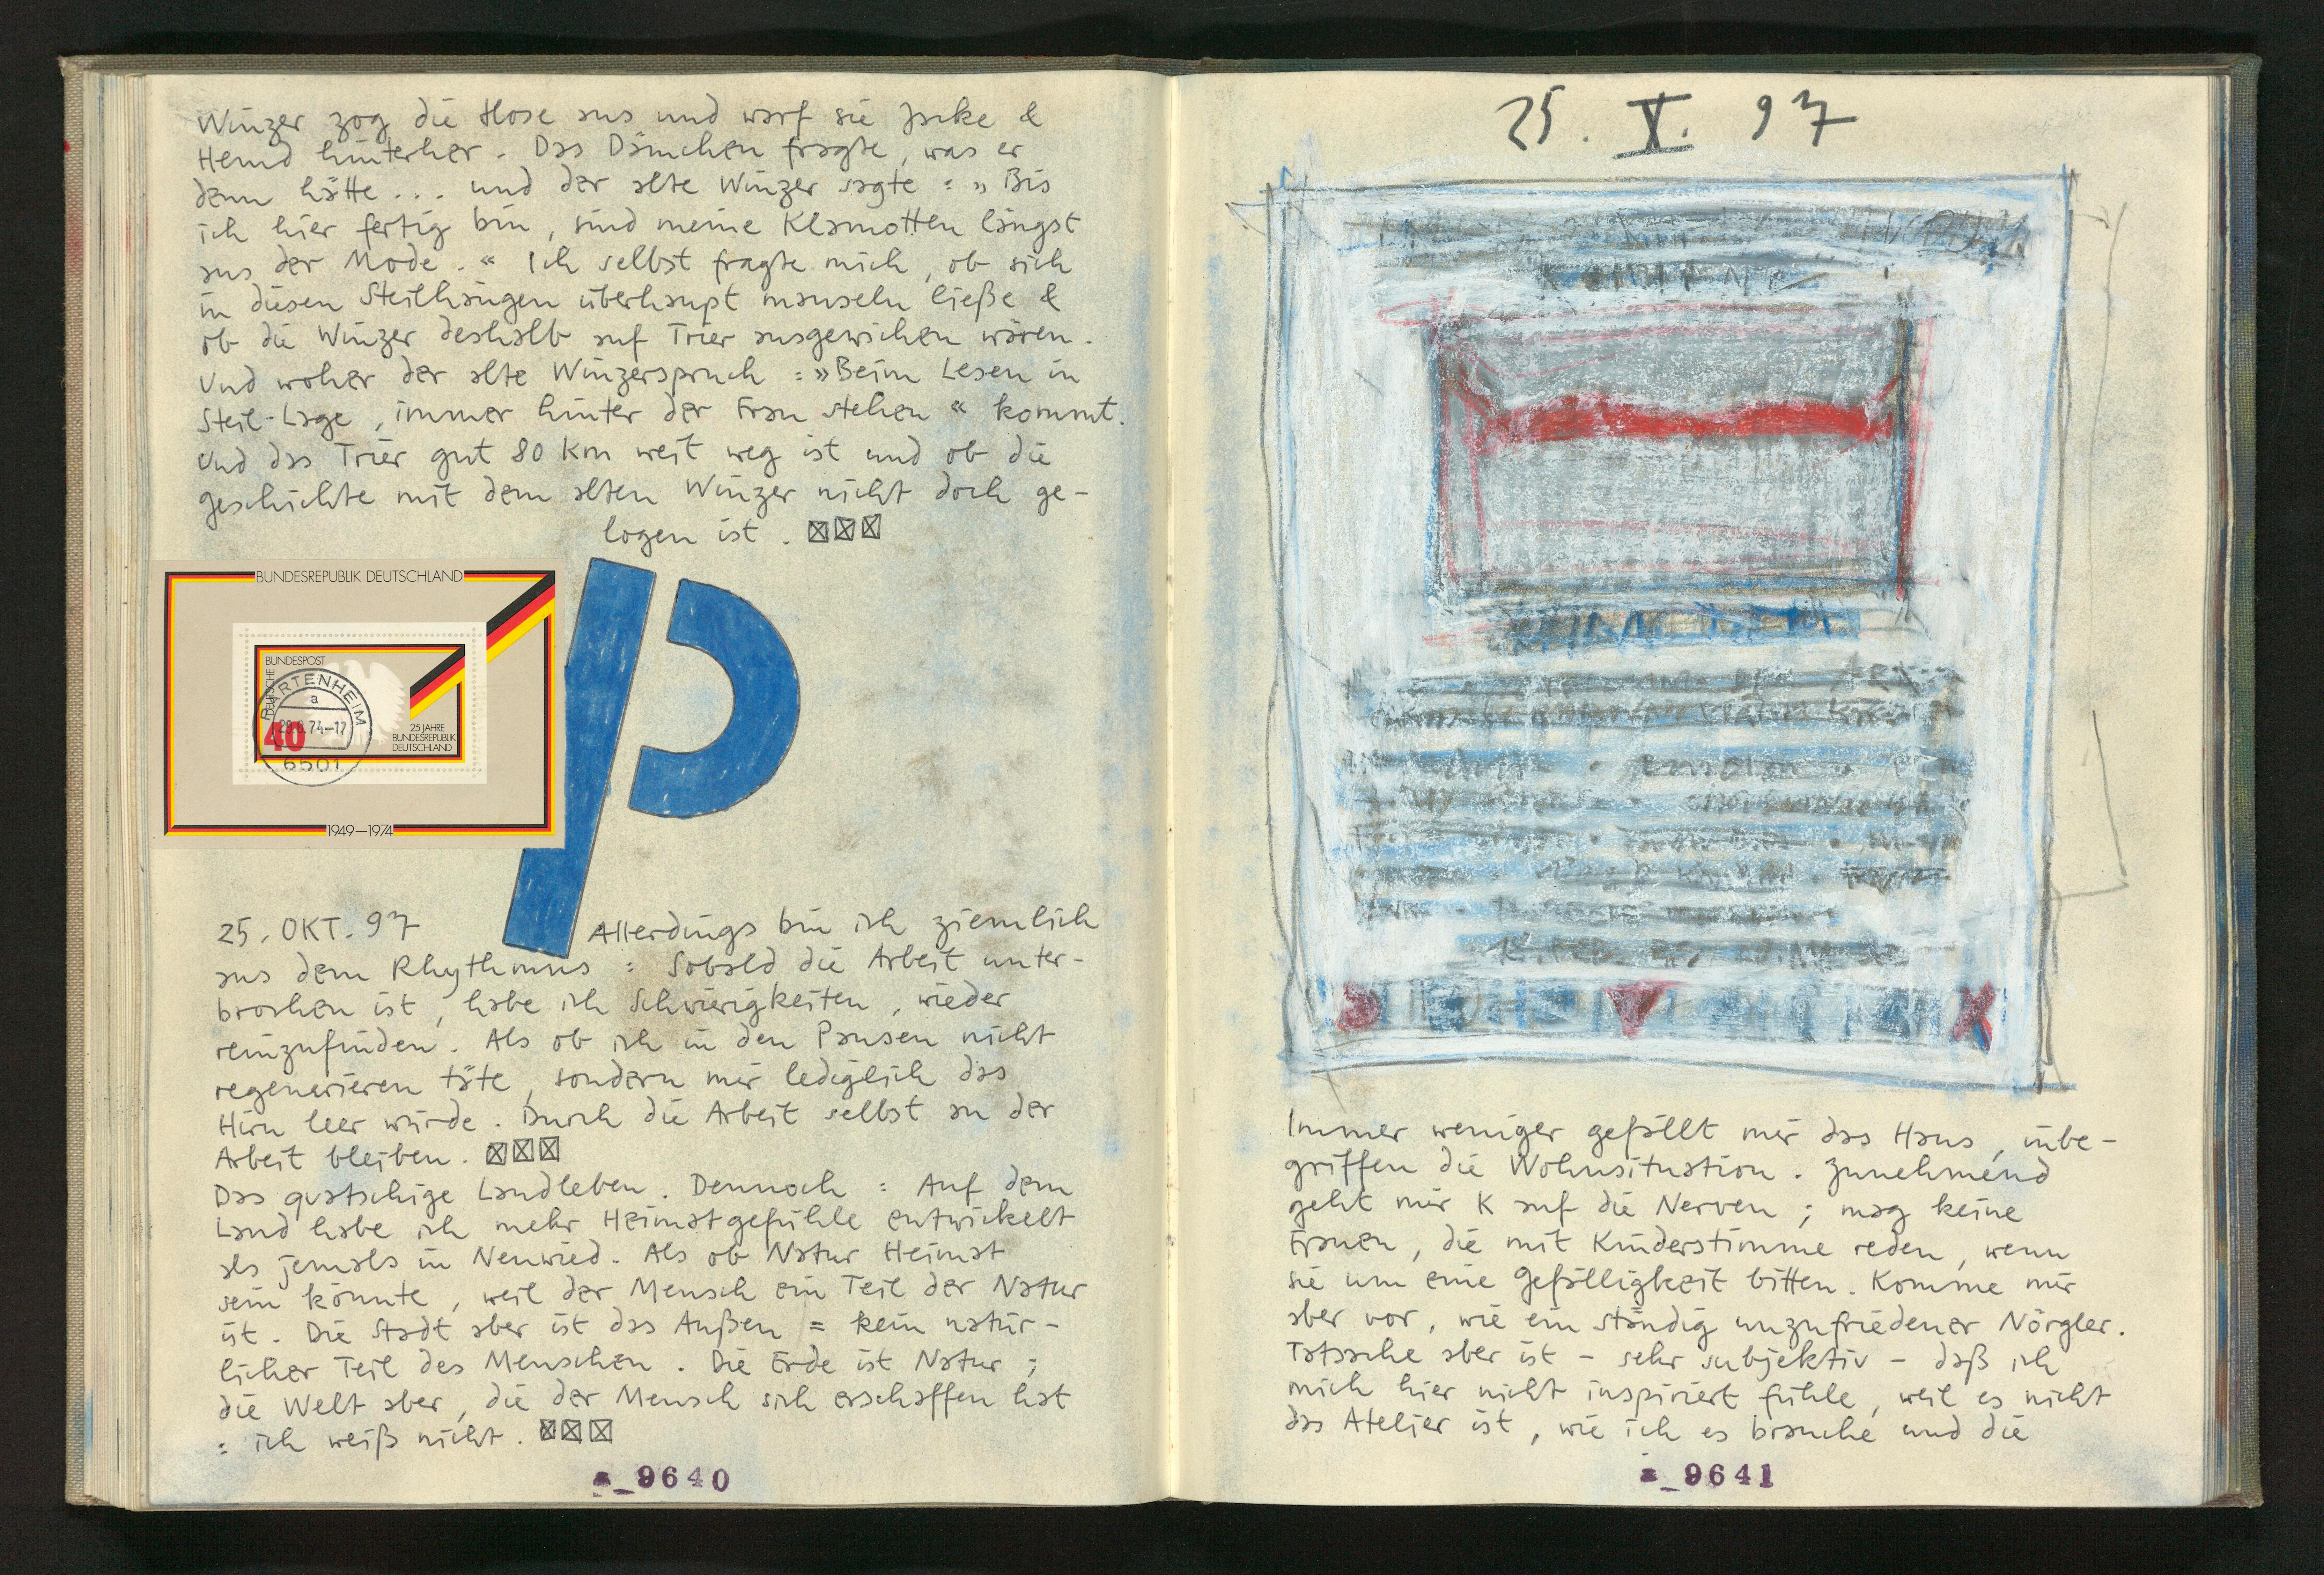 Winzer zog die Hose aus und warf sie Jacke &
Hemd hinterher. Das Dämchen fragte, was er
denn hätte... und der alte Winzer sagte: »Bis
ich hier fertig bin, sind meine Klamotten längst
aus der Mode.« Ich selbst fragte mich, ob sich
in diesen Steilhängen überhaupt mauseln ließe &
ob die Winzer deshalb auf Trier ausgewichen wären.
Und woher der alte Winzerspruch: »Beim Lesen in
Steil-Lage, immer hinter der Frau stehen« kommt.
Und das Trier gut 80 Km weit weg ist und ob die
Geschichte mit dem alten Winzer nicht doch ge-
logen ist. ☒☒☒
BUNDESREPUBLIK DEUTSCHLAND
DEUTSCHE BUNDESPOST
PARTENHEIM
a
29.6.74-17
40
6501
25 JAHRE
BUNDESREPUBLIK
DEUTSCHLAND
1949–1974
P
25. OKT. 97 Allerdings bin ich ziemlich
aus dem Rhythmus: Sobald die Arbeit unter-
brochen ist, habe ich Schwierigkeiten, wieder
reinzufinden. Als ob ich in den Pausen nicht
regenerieren täte, sondern mir lediglich das
Hirn leer würde. Durch die Arbeit selbst an der
Arbeit bleiben. ☒☒☒
Das quatschige Landleben. Dennoch: Auf dem
Land habe ich mehr Heimatgefühle entwickelt
als jemals in Neuwied. Als ob Natur Heimat
sein könnte, weil der Mensch ein Teil der Natur
ist. Die Stadt aber ist das Außen = kein natür-
licher Teil des Menschen. Die Erde ist Natur;
die Welt aber, die der Mensch sich erschaffen hat
: ich weiß nicht. ☒☒☒
a_9640
25. X. 97
Immer weniger gefällt mir das Haus, inbe-
griffen die Wohnsituation. Zunehmend
geht mir K auf die Nerven; mag keine
Frauen, die mit Kinderstimme reden, wenn
sie um eine Gefälligkeit bitten. Komme mir
aber vor, wie ein ständig unzufriedener Nörgler.
Tatsache aber ist – sehr subjektiv – daß ich
mich hier nicht inspiriert fühle, weil es nicht
das Atelier ist, wie ich es brauche und die
a_9641